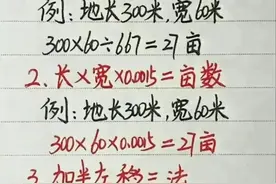 例：地长300米，宽60米
300×60÷667=27亩
2、长×宽×0.0015=亩数
例：地长300米，宽60米
300×60×0.0015=27亩
3、加半左移三法